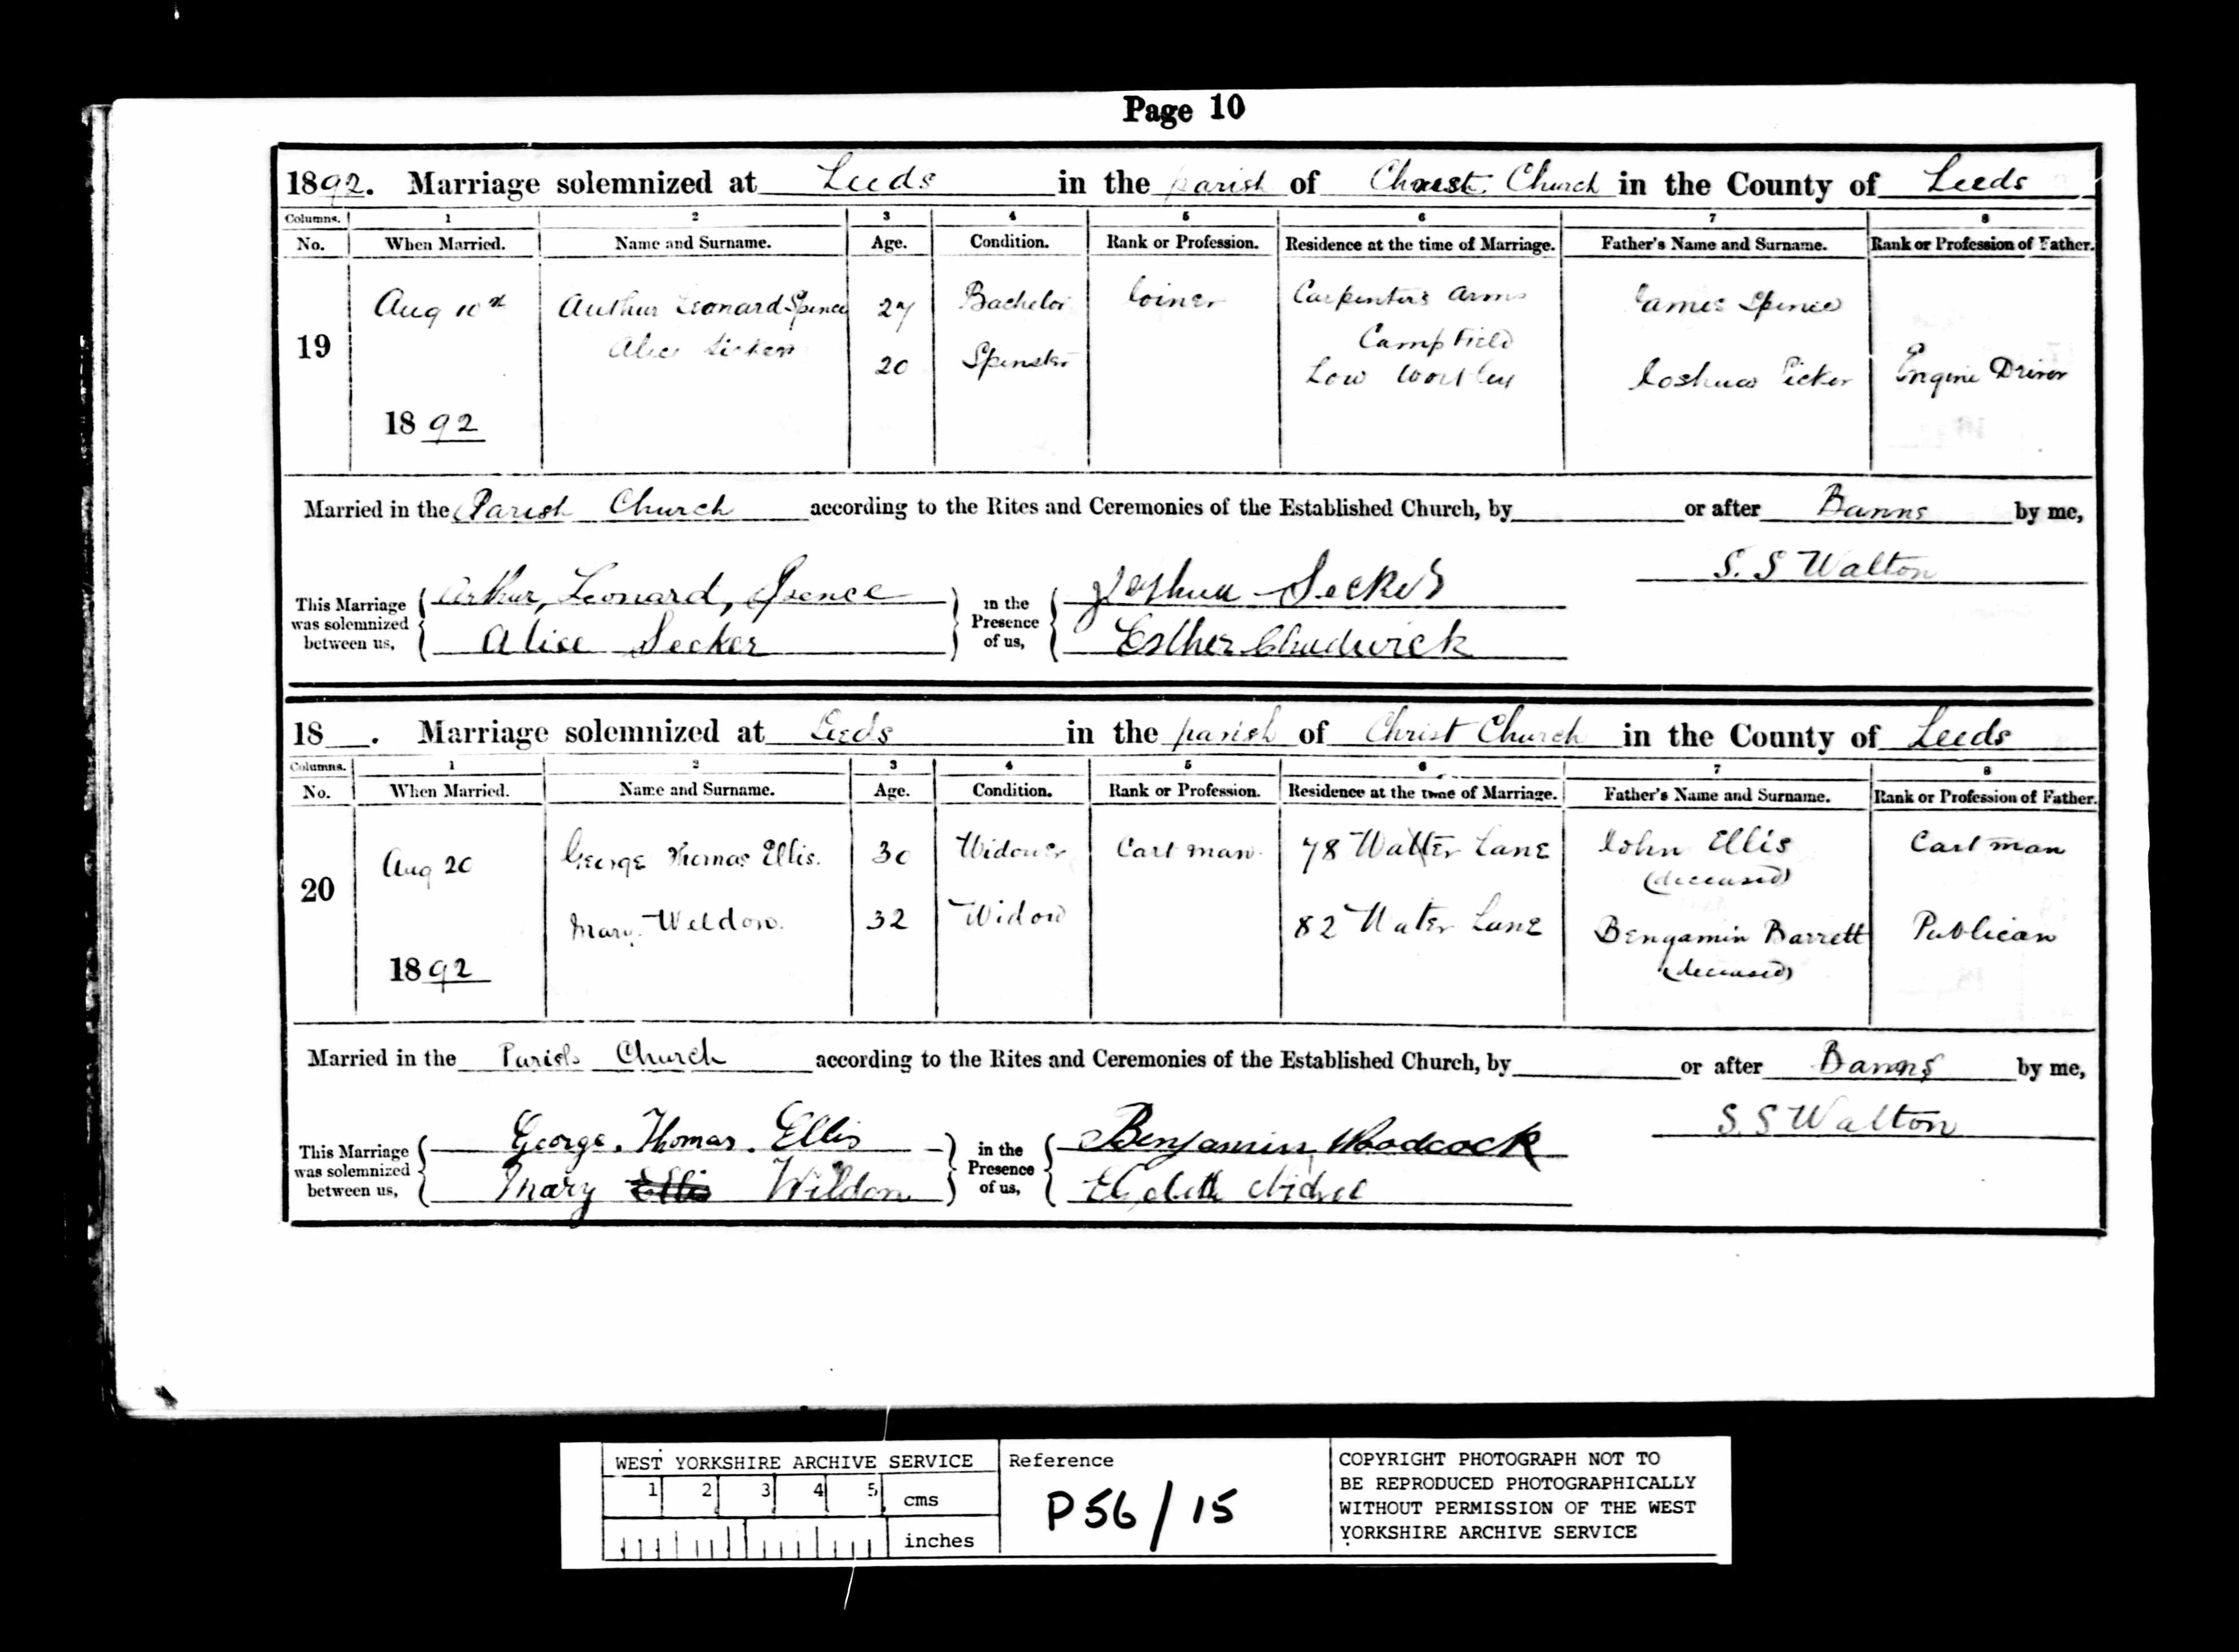 Page 10
1892. Marriage solemnized at Leeds in the parish of Christ Church in the County of Leeds
Columns. 1 2 3 4 5 6 7 8
No. When Married. Name and Surname. Age. Condition. Rank or Profession. Residence at the time of Marriage. Father's Name and Surname. Rank or Profession of Father.
19 Aug 10th Arthur Leonard Spence 27 Bachelor Joiner Carpenters Arms Campfield James Spence
Alice Secker 20 Spinster Low Wortley Joshua Secker Engine Driver
1892
Married in the Parish Church according to the Rites and Ceremonies of the Established Church, by or after Banns by me,
S. S Walton
This Marriage was solemnized between us, Arthur, Leonard, Spence in the Presence of us, Joshua Secker
Alice Secker Esther Chadwick
18 . Marriage solemnized at Leeds in the parish of Christ Church in the County of Leeds
Columns. 1 2 3 4 5 6 7 8
No. When Married. Name and Surname. Age. Condition. Rank or Profession. Residence at the time of Marriage. Father's Name and Surname. Rank or Profession of Father.
20 Aug 20 George Thomas Ellis. 30 Widower Cart man 78 Water Lane John Ellis (deceased) Cart man
Mary Weldon. 32 Widow 82 Water Lane Bengamin Barrett (deceased) Publican
1892
Married in the Parish Church according to the Rites and Ceremonies of the Established Church, by or after Banns by me,
S. S Walton
This Marriage was solemnized between us, George. Thomas. Ellis in the Presence of us, Benjamin Woodcock
Mary Ellis Wildon Elizabeth
WEST YORKSHIRE ARCHIVE SERVICE
1 2 3 4 5 cms
inches
Reference
P56/15
COPYRIGHT PHOTOGRAPH NOT TO
BE REPRODUCED PHOTOGRAPHICALLY
WITHOUT PERMISSION OF THE WEST
YORKSHIRE ARCHIVE SERVICE